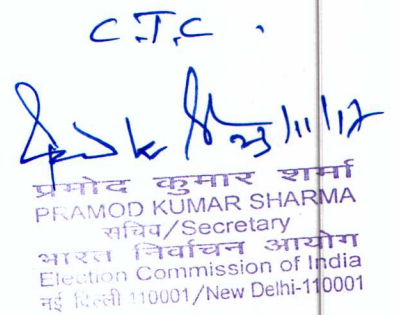 C.T.C.
23/11/17
प्रमोद कुमार शर्मा
PRAMOD KUMAR SHARMA
सचिव/Secretary
भारत निर्वाचन आयोग
Election Commission of India
नई दिल्ली 110001/New Delhi-110001